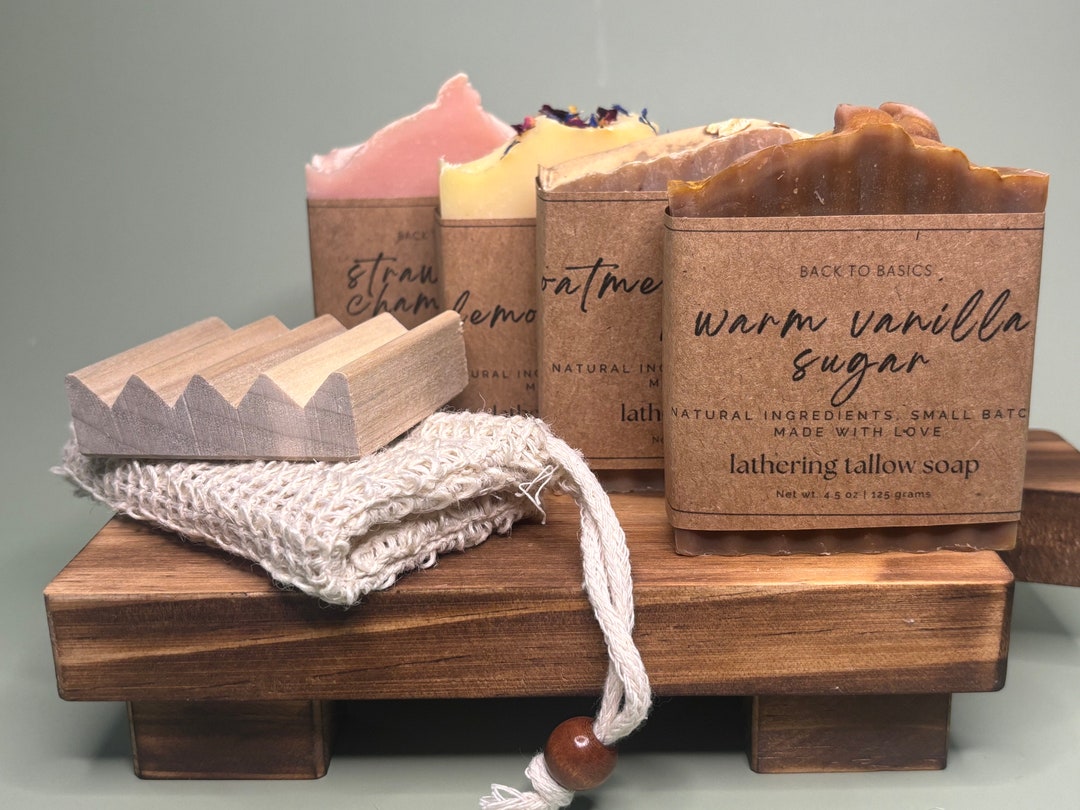 BACK
straw
cham
lemo
URAL IN
lath
oatme
NATURAL ING
M
lath
N
BACK TO BASICS
warm vanilla
sugar
NATURAL INGREDIENTS, SMALL BATC
MADE WITH LOVE
lathering tallow soap
Net wt. 4.5 oz | 125 grams